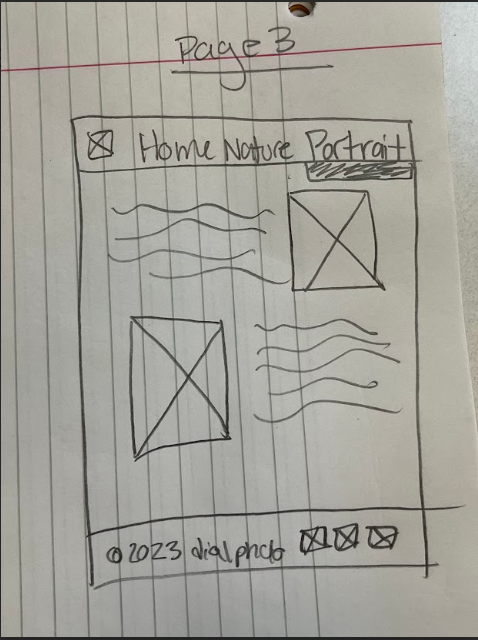 Page 3
Home Nature Portrait
© 2023 dialphoto